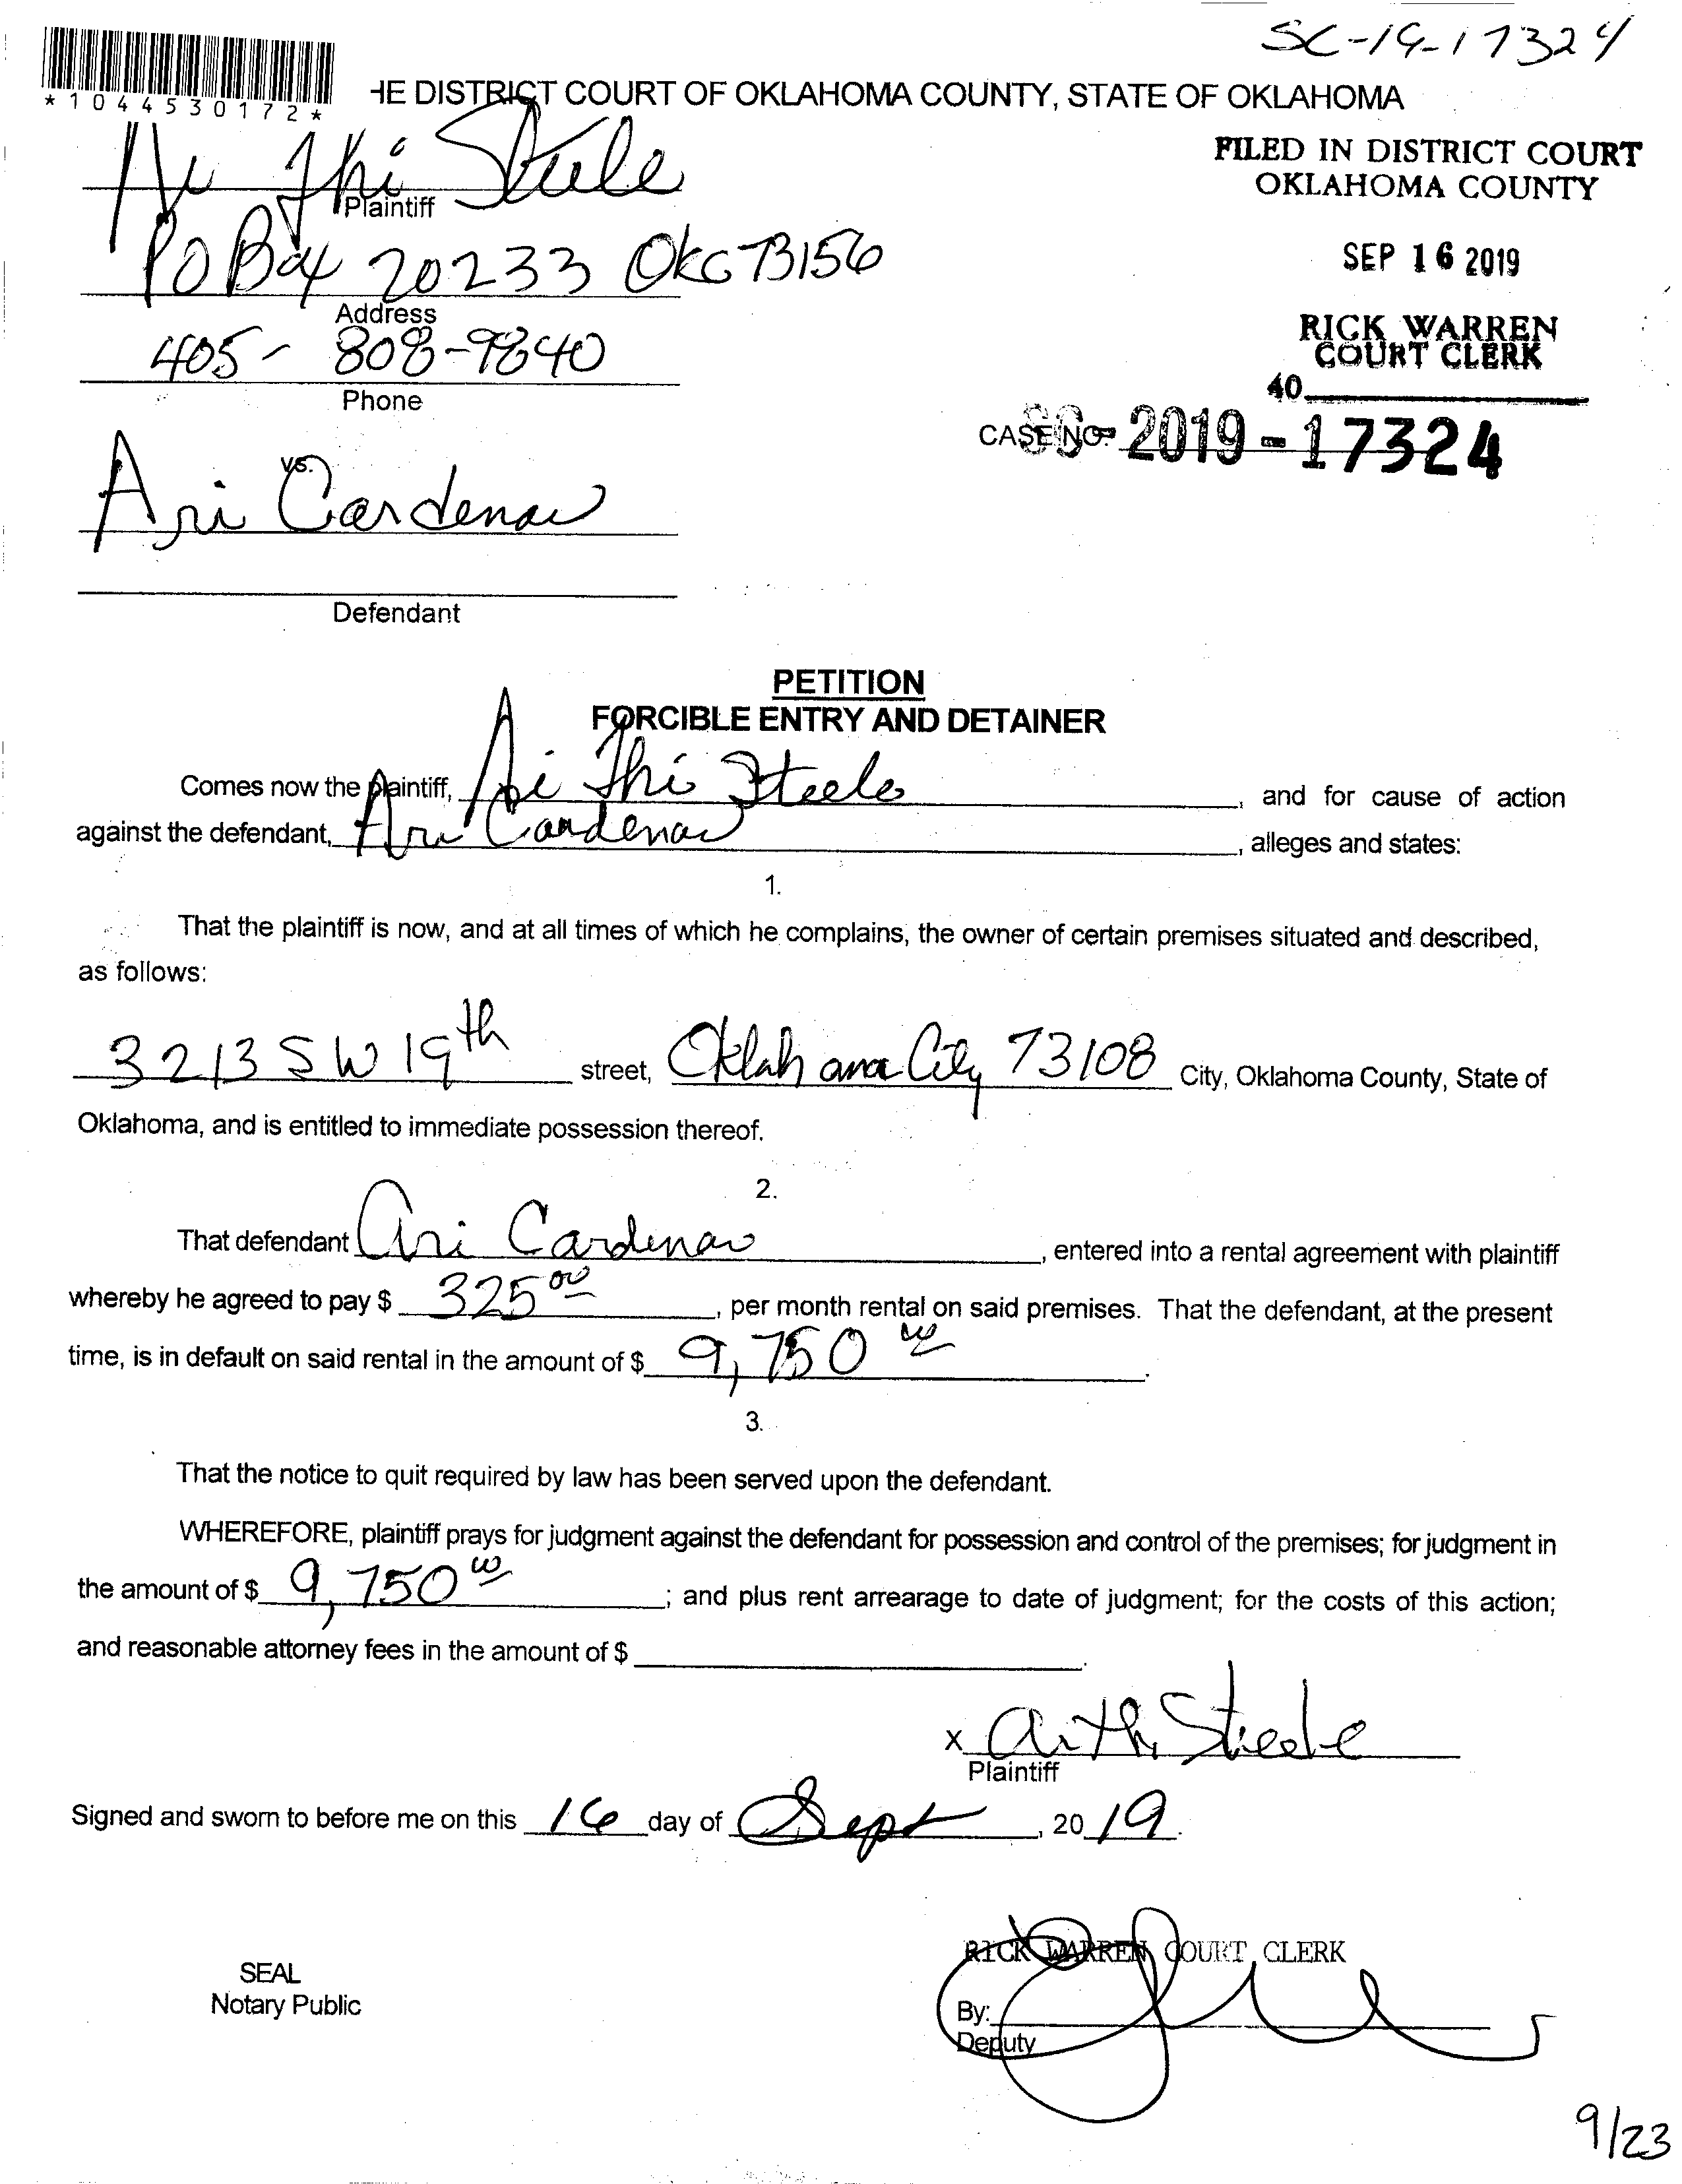 SC-19-17324
*1044530172*
HE DISTRICT COURT OF OKLAHOMA COUNTY, STATE OF OKLAHOMA
FILED IN DISTRICT COURT
OKLAHOMA COUNTY
Ai Thi Steele
Plaintiff
SEP 16 2019
PO Box 20233 OKC 73156
Address
RICK WARREN
COURT CLERK
405-808-9840
40
Phone
CASE NO. SC-2019-17324
vs.
Ari Cardenas
Defendant
PETITION
FORCIBLE ENTRY AND DETAINER
Comes now the plaintiff, Ai Thi Steele, and for cause of action
against the defendant, Ari Cardenas, alleges and states:
1.
That the plaintiff is now, and at all times of which he complains, the owner of certain premises situated and described,
as follows:
3213 SW 19th street, Oklahoma City 73108 City, Oklahoma County, State of
Oklahoma, and is entitled to immediate possession thereof.
2.
That defendant Ari Cardenas, entered into a rental agreement with plaintiff
whereby he agreed to pay $ 325 00, per month rental on said premises. That the defendant, at the present
time, is in default on said rental in the amount of $ 9,750 00.
3.
That the notice to quit required by law has been served upon the defendant.
WHEREFORE, plaintiff prays for judgment against the defendant for possession and control of the premises; for judgment in
the amount of $ 9,750 00; and plus rent arrearage to date of judgment; for the costs of this action;
and reasonable attorney fees in the amount of $ .
x Ai Thi Steele
Plaintiff
Signed and sworn to before me on this 16 day of Sept, 20 19.
RICK WARREN COURT CLERK
SEAL
Notary Public
By:
Deputy
9/23